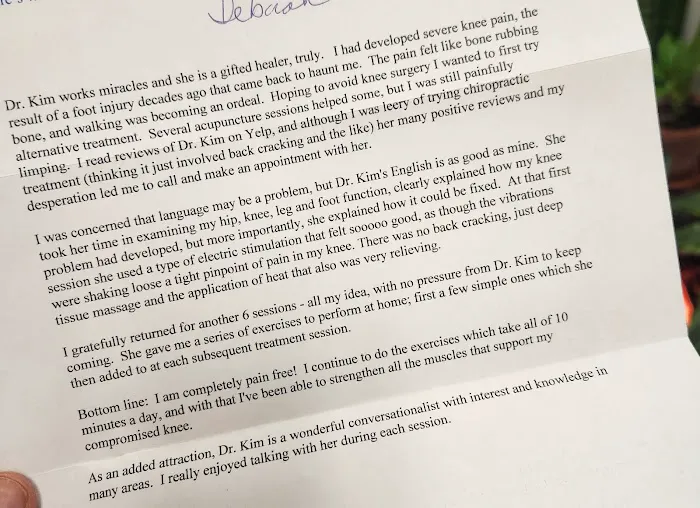 Deborah
Dr. Kim works miracles and she is a gifted healer, truly. I had developed severe knee pain, the
result of a foot injury decades ago that came back to haunt me. The pain felt like bone rubbing
bone, and walking was becoming an ordeal. Hoping to avoid knee surgery I wanted to first try
alternative treatment. Several acupuncture sessions helped some, but I was still painfully
limping. I read reviews of Dr. Kim on Yelp, and although I was leery of trying chiropractic
treatment (thinking it just involved back cracking and the like) her many positive reviews and my
desperation led me to call and make an appointment with her.
I was concerned that language may be a problem, but Dr. Kim's English is as good as mine. She
took her time in examining my hip, knee, leg and foot function, clearly explained how my knee
problem had developed, but more importantly, she explained how it could be fixed. At that first
session she used a type of electric stimulation that felt sooooo good, as though the vibrations
were shaking loose a tight pinpoint of pain in my knee. There was no back cracking, just deep
tissue massage and the application of heat that also was very relieving.
I gratefully returned for another 6 sessions - all my idea, with no pressure from Dr. Kim to keep
coming. She gave me a series of exercises to perform at home; first a few simple ones which she
then added to at each subsequent treatment session.
Bottom line: I am completely pain free! I continue to do the exercises which take all of 10
minutes a day, and with that I've been able to strengthen all the muscles that support my
compromised knee.
As an added attraction, Dr. Kim is a wonderful conversationalist with interest and knowledge in
many areas. I really enjoyed talking with her during each session.